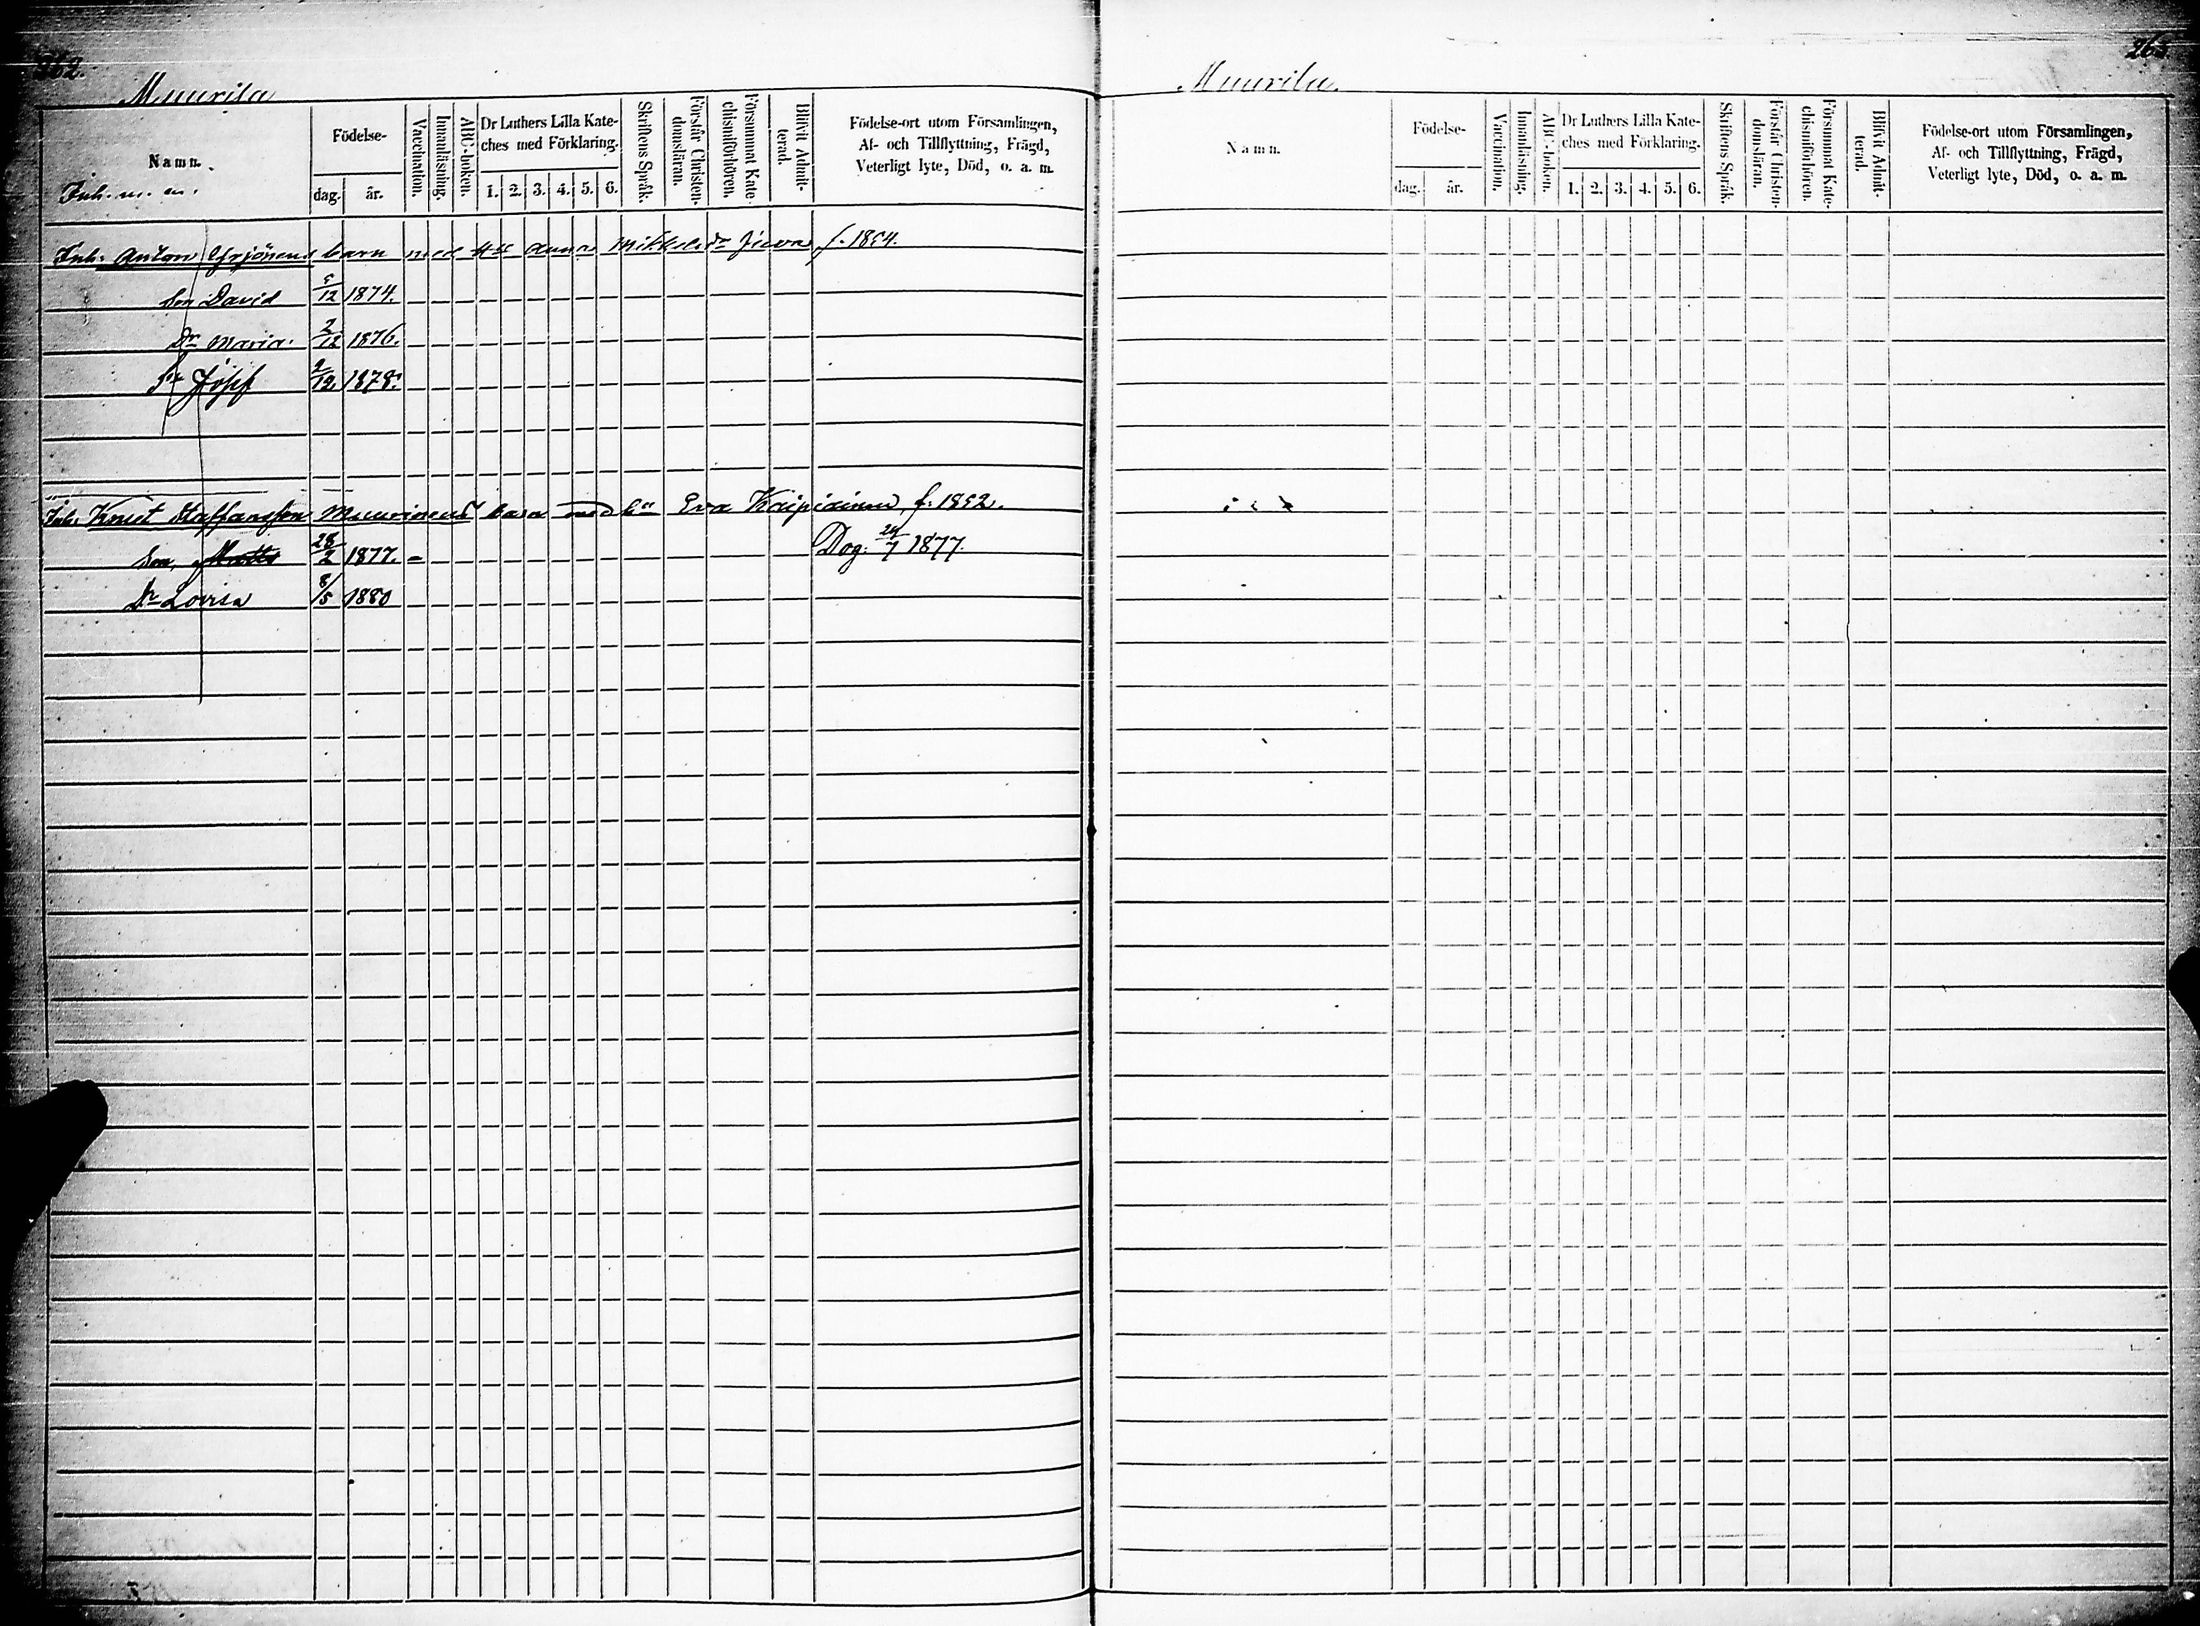 262.
Muurila
Namn.
Inh. m. m.
Födelse-
dag. år.
Vaccination.
Innanläsning.
ABC-boken.
Dr Luthers Lilla Kate-
ches med Förklaring.
1. 2. 3. 4. 5. 6.
Skriftens Språk.
Förstår Christen-
domsläran.
Försummat Kate-
chismiförhören.
Blifvit Admit-
terad.
Födelse-ort utom Församlingen,
Af- och Tillflyttning, Frägd,
Veterligt lyte, Död, o. a. m.
Inh: Anton Yrjönens barn med Anna Mikkelsdr f. 1854.
Son David 5/12 1874.
Dr Maria. 2/12 1876.
Sn Josef 2/12 1878.
Inh: Knut Staffansson Muurinens barn med Eva Kaipiainen f: 1852.
Son, Matts 28/2 1877. Dog: 24/7 1877.
Dr Lovisa 8/5 1880
263
Muurila
Namn.
Födelse-
dag. år.
Vaccination.
Innanläsning.
ABC-boken.
Dr Luthers Lilla Kate-
ches med Förklaring.
1. 2. 3. 4. 5. 6.
Skriftens Språk.
Förstår Christen-
domsläran.
Försummat Kate-
chismiförhören.
Blifvit Admit-
terad.
Födelse-ort utom Församlingen,
Af- och Tillflyttning, Frägd,
Veterligt lyte, Död, o. a. m.